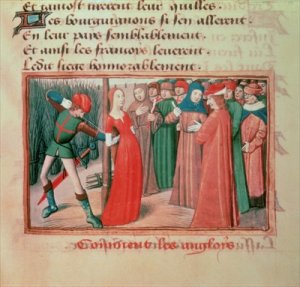 Et tantost tirerent leur quilles.
Les bourguignons si sen allerent.
En leur pays semblablement.
Et ainsi les francois leuerent.
Ledit siege honnorablement.
Comment les anglois